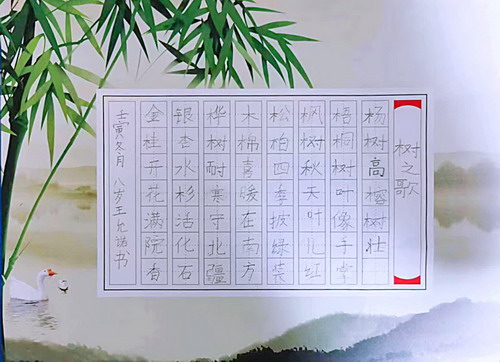 树之歌
杨树高榕树壮
梧桐树叶像手掌
枫树秋天叶儿红
松柏四季披绿装
木棉喜暖在南方
桦树耐寒守北疆
银杏水杉活化石
金桂开花满院香
壬寅冬月 八岁王允诺书